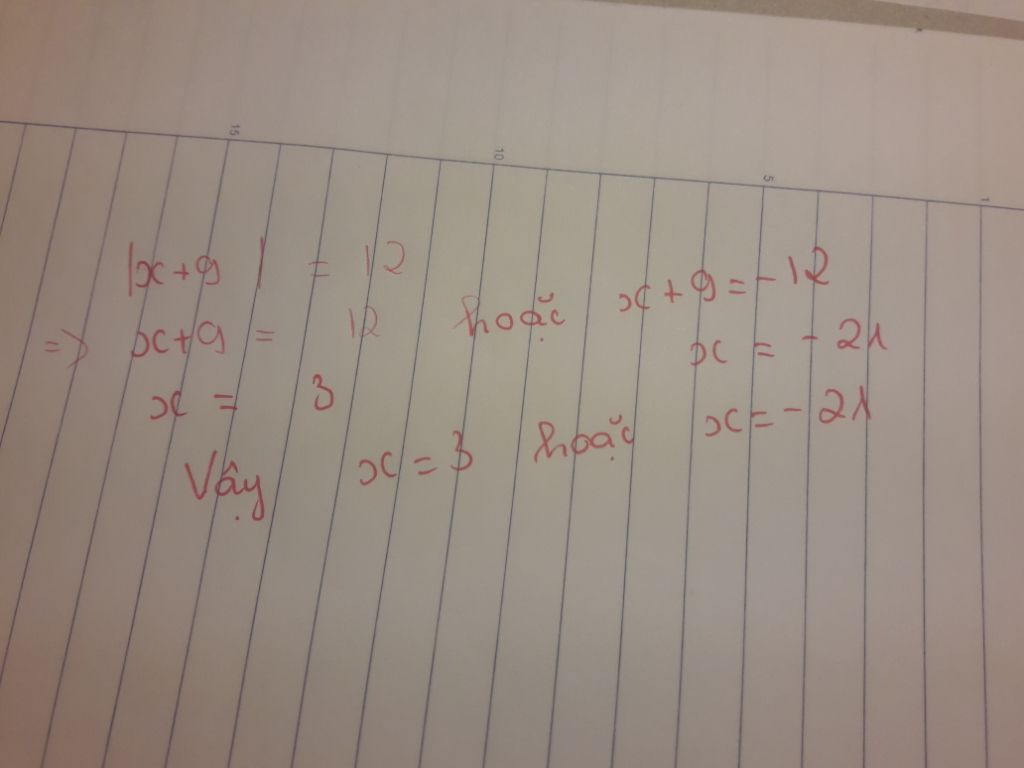 15 10 5 1
|x+9| = 12
=> x+9 = 12 hoặc x+9=-12
x = 3 x = -21
Vậy x=3 hoặc x=-21